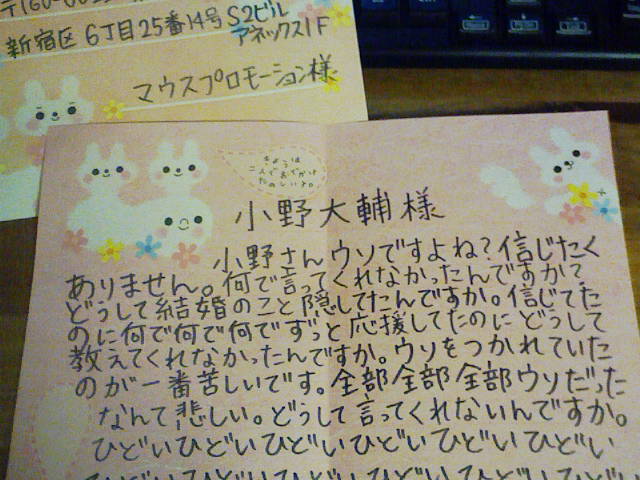 〒160-00
新宿区 6丁目25番14号 S2ビル
アネックス1F
マウスプロモーション様
きょうは
二人でおでかけ
たのしいな。
小野大輔様
小野さんウソですよね?信じたく
ありません。何で言ってくれなかったんですか?
どうして結婚のこと隠してたんですか。信じてた
のに何で何で何でずっと応援してたのにどうして
教えてくれなかったんですか。ウソをつかれていた
のが一番苦しいです。全部全部全部ウソだった
なんて悲しい。どうして言ってくれないんですか。
ひどいひどいひどいひどいひどいひどい